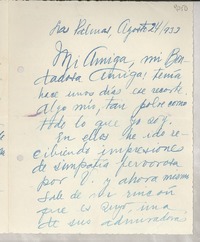 Las Palmas, Agosto 24/933
Mi Amiga, mi Bon-
dadosa Amiga; tenía
hace unos días ese recorte.
Algo mío, tan pobre como
todo lo que yo soy.
En ellos he ido re-
cibiendo impresiones
de simpatía fervorosa
por V. y ahora mismo
sale de un rincón
que es suyo, una
de sus admiradoras